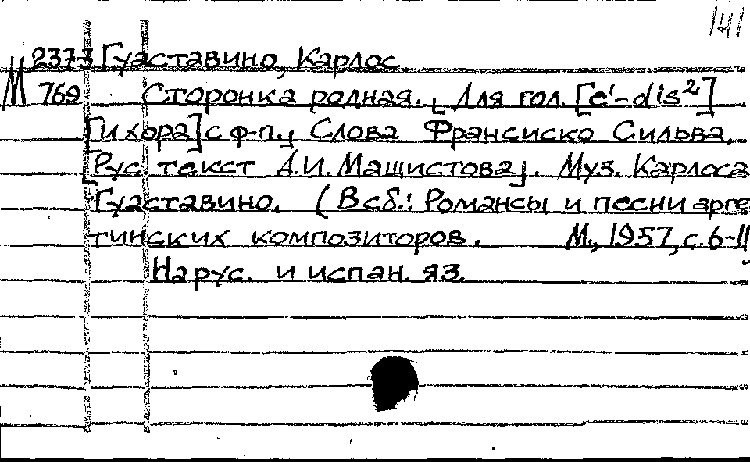 141
М 2373 Гуаставино, Карлос.
769 Сторонка родная. Для гол. [e'-dis²]
[и хора] с ф-п., Слова Франсиско Сильва,
[Рус. текст А.И. Машистова]. Муз. Карлоса
Гуаставино. (В сб.: Романсы и песни арге
тинских композиторов. М., 1957, с. 6-11
На рус. и испан. яз.